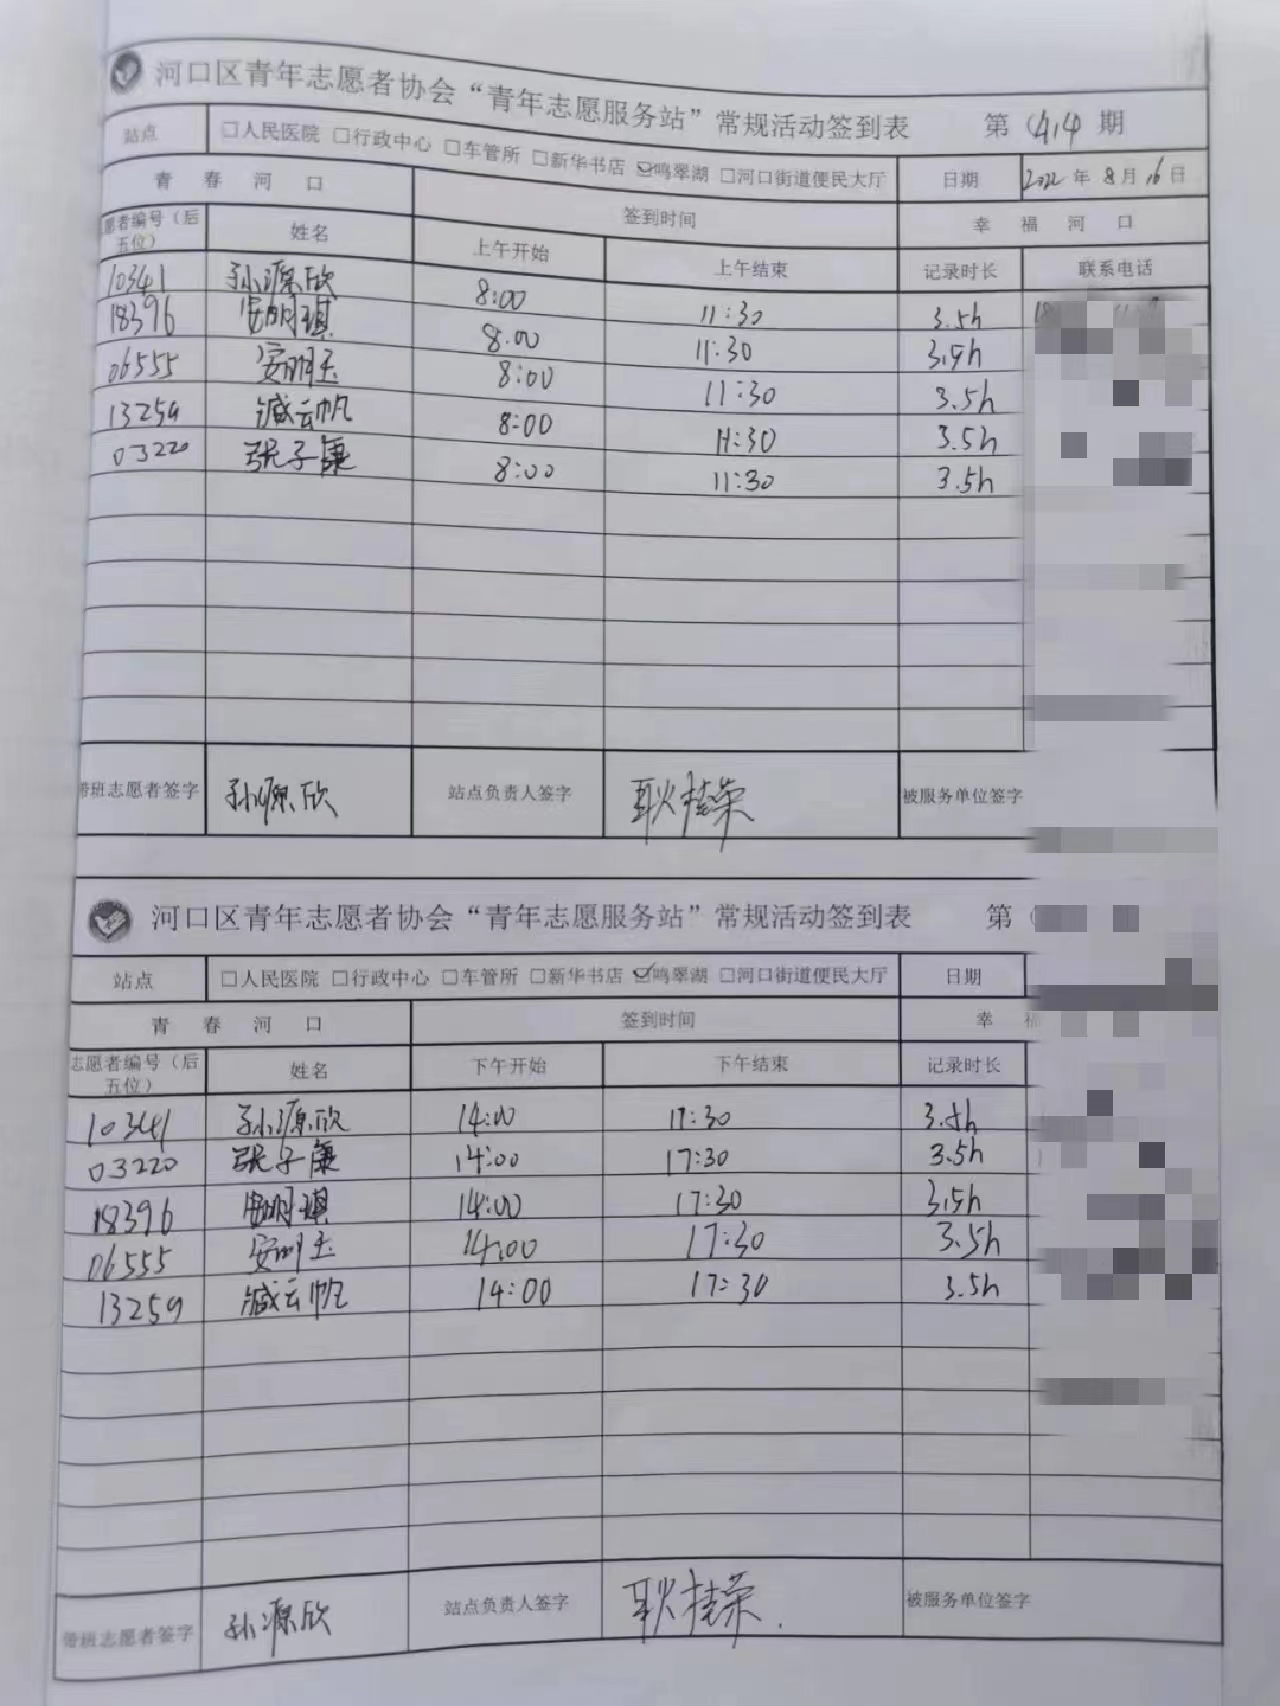 河口区青年志愿者协会“青年志愿服务站”常规活动签到表 第 414 期
站点 □人民医院 □行政中心 □车管所 □新华书店 ☑鸣翠湖 □河口街道便民大厅 日期 2022年8月16日
青春河口 签到时间 幸福河口
愿者编号（后五位） 姓名 上午开始 上午结束 记录时长 联系电话
10341 孙源欣 8:00 11:30 3.5h
18396 安明琪 8:00 11:30 3.5h
06555 安明玉 8:00 11:30 3.5h
13259 臧云帆 8:00 11:30 3.5h
03220 张子康 8:00 11:30 3.5h
带班志愿者签字 孙源欣 站点负责人签字 耿桂荣 被服务单位签字
河口区青年志愿者协会“青年志愿服务站”常规活动签到表 第
站点 □人民医院 □行政中心 □车管所 □新华书店 ☑鸣翠湖 □河口街道便民大厅 日期
青春河口 签到时间 幸福
志愿者编号（后五位） 姓名 下午开始 下午结束 记录时长
10341 孙源欣 14:00 17:30 3.5h
03220 张子康 14:00 17:30 3.5h
18396 安明琪 14:00 17:30 3.5h
06555 安明玉 14:00 17:30 3.5h
13259 臧云帆 14:00 17:30 3.5h
带班志愿者签字 孙源欣 站点负责人签字 耿桂荣 被服务单位签字